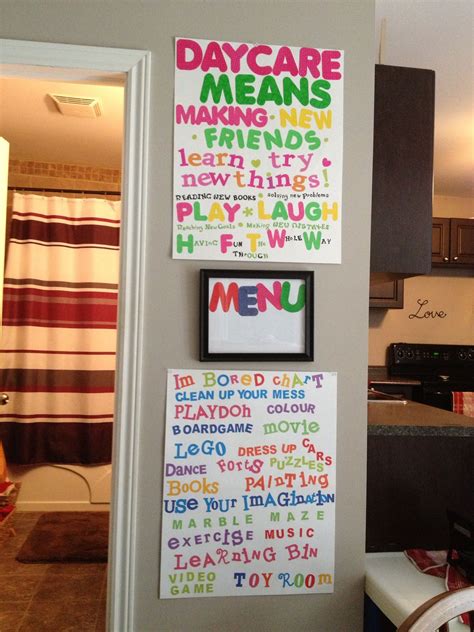 DAYCARE
MEANS
MAKING NEW
FRIENDS
learn try
new things!
READING NEW BOOKS solving new problems
PLAY LAUGH
Reaching New Goals Making NEW MISTAKES
HAVING FUN THE WHOLE WAY
THROUGH
MENU
Im BORED chART
CLEAN UP YOUR MESS
PLAYDOH COLOUR
BOARDGAME movie
LeGO DRESS UP CARS
DANCE FORTS PUZZLES
BOOKS PAINTING
USE YOUR IMAGINATION
MARBLE MAZE
exercise MUSIC
LEARNING BIN
VIDEO
GAME TOY ROOM
Love